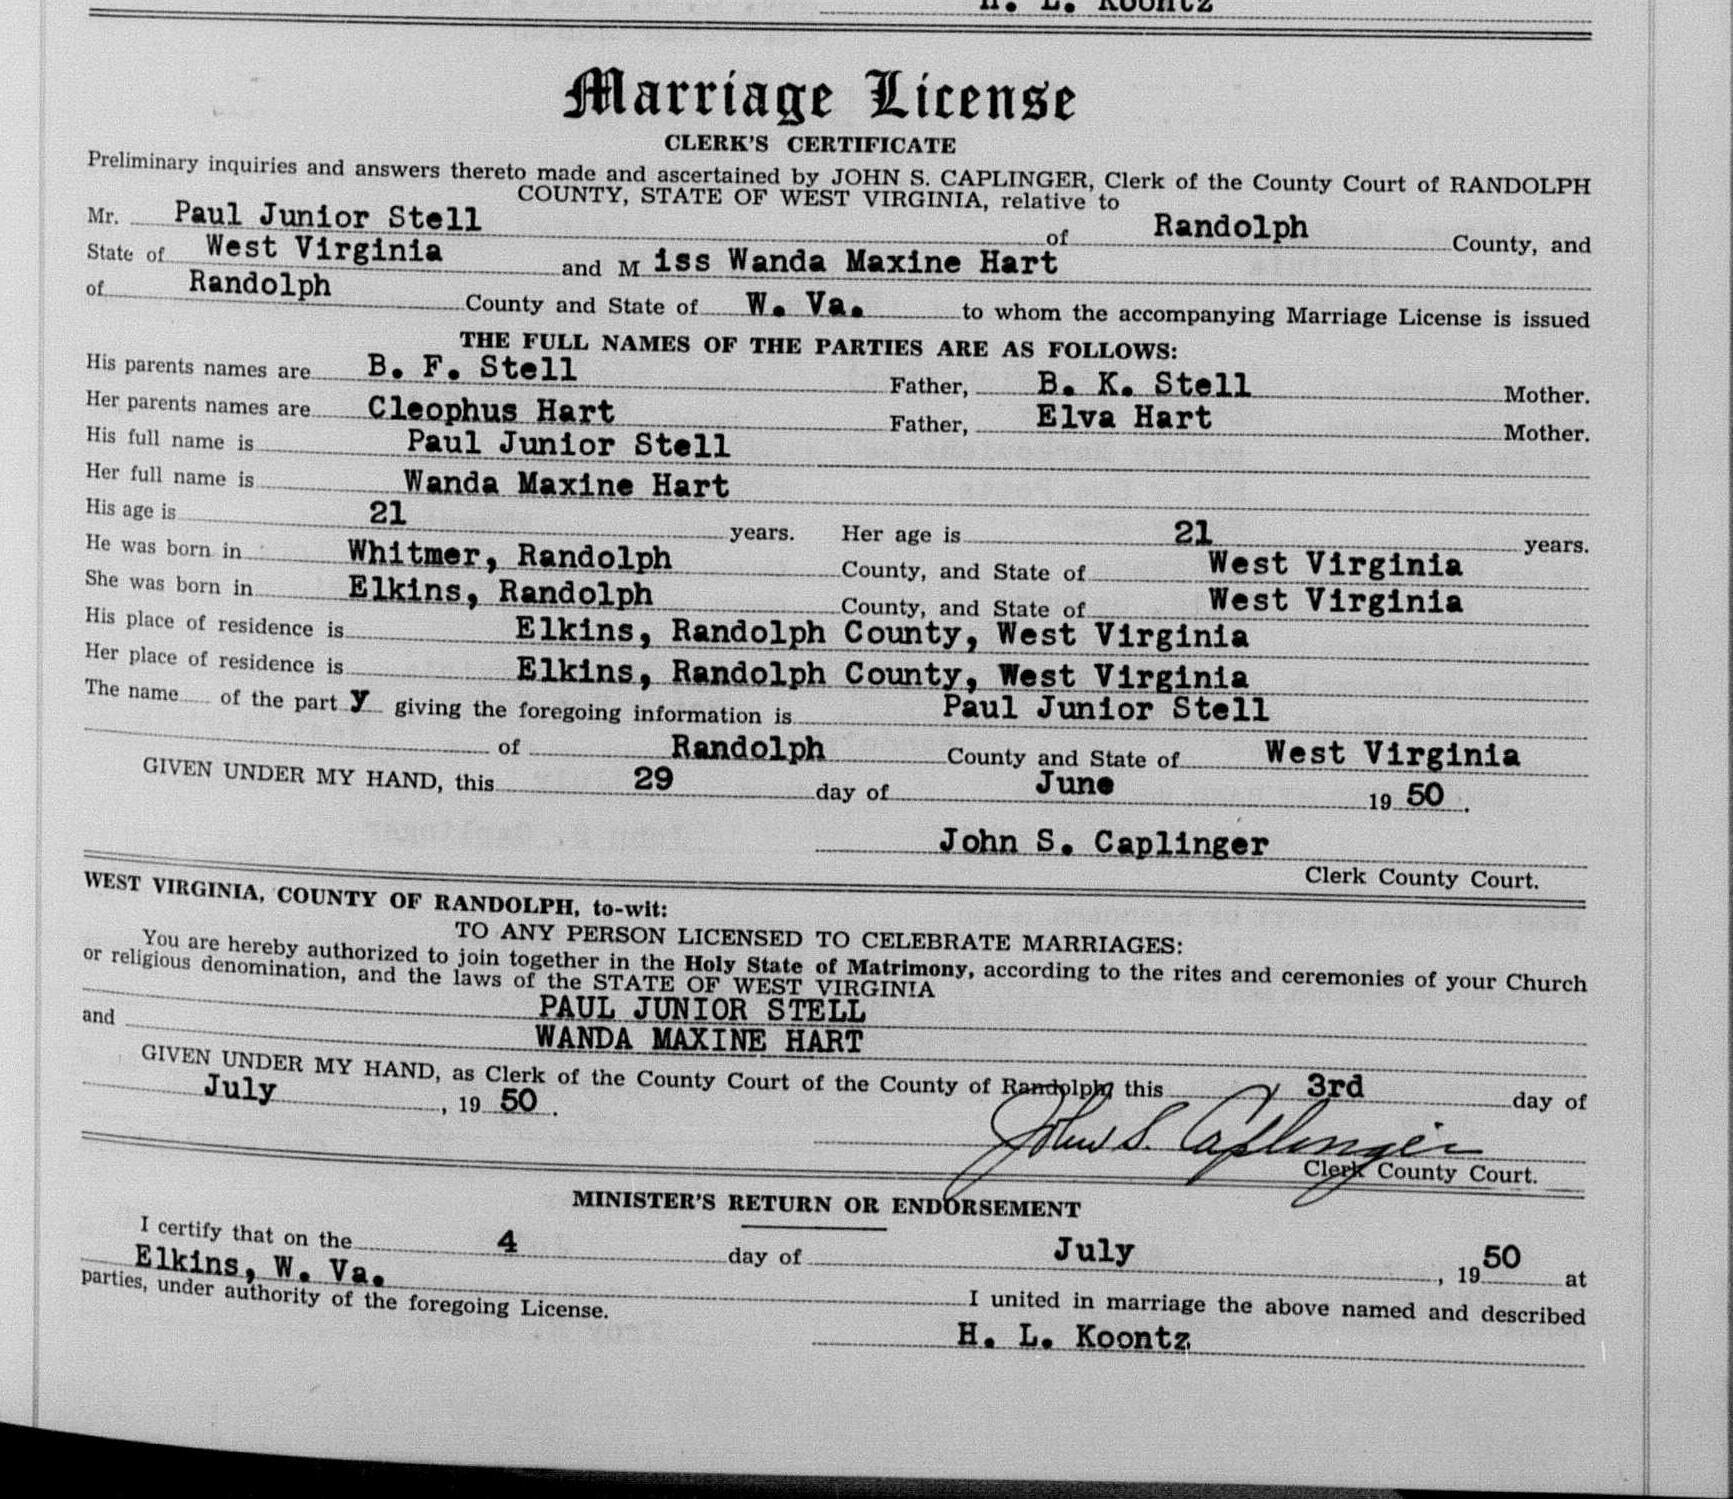 H. L. Koontz
Marriage License
CLERK'S CERTIFICATE
Preliminary inquiries and answers thereto made and ascertained by JOHN S. CAPLINGER, Clerk of the County Court of RANDOLPH
COUNTY, STATE OF WEST VIRGINIA, relative to
Mr. Paul Junior Stell of Randolph County, and
State of West Virginia and M iss Wanda Maxine Hart
of Randolph County and State of W. Va. to whom the accompanying Marriage License is issued
THE FULL NAMES OF THE PARTIES ARE AS FOLLOWS:
His parents names are B. F. Stell Father, B. K. Stell Mother.
Her parents names are Cleophus Hart Father, Elva Hart Mother.
His full name is Paul Junior Stell
Her full name is Wanda Maxine Hart
His age is 21 years. Her age is 21 years.
He was born in Whitmer, Randolph County, and State of West Virginia
She was born in Elkins, Randolph County, and State of West Virginia
His place of residence is Elkins, Randolph County, West Virginia
Her place of residence is Elkins, Randolph County, West Virginia
The name of the part y giving the foregoing information is Paul Junior Stell
of Randolph County and State of West Virginia
GIVEN UNDER MY HAND, this 29 day of June 19 50 .
John S. Caplinger
Clerk County Court.
WEST VIRGINIA, COUNTY OF RANDOLPH, to-wit:
TO ANY PERSON LICENSED TO CELEBRATE MARRIAGES:
You are hereby authorized to join together in the Holy State of Matrimony, according to the rites and ceremonies of your Church
or religious denomination, and the laws of the STATE OF WEST VIRGINIA
PAUL JUNIOR STELL
and WANDA MAXINE HART
GIVEN UNDER MY HAND, as Clerk of the County Court of the County of Randolph, this 3rd day of
July , 19 50 .
John S. Caplinger
Clerk County Court.
MINISTER'S RETURN OR ENDORSEMENT
I certify that on the 4 day of July , 19 50 at
Elkins, W. Va. I united in marriage the above named and described
parties, under authority of the foregoing License.
H. L. Koontz